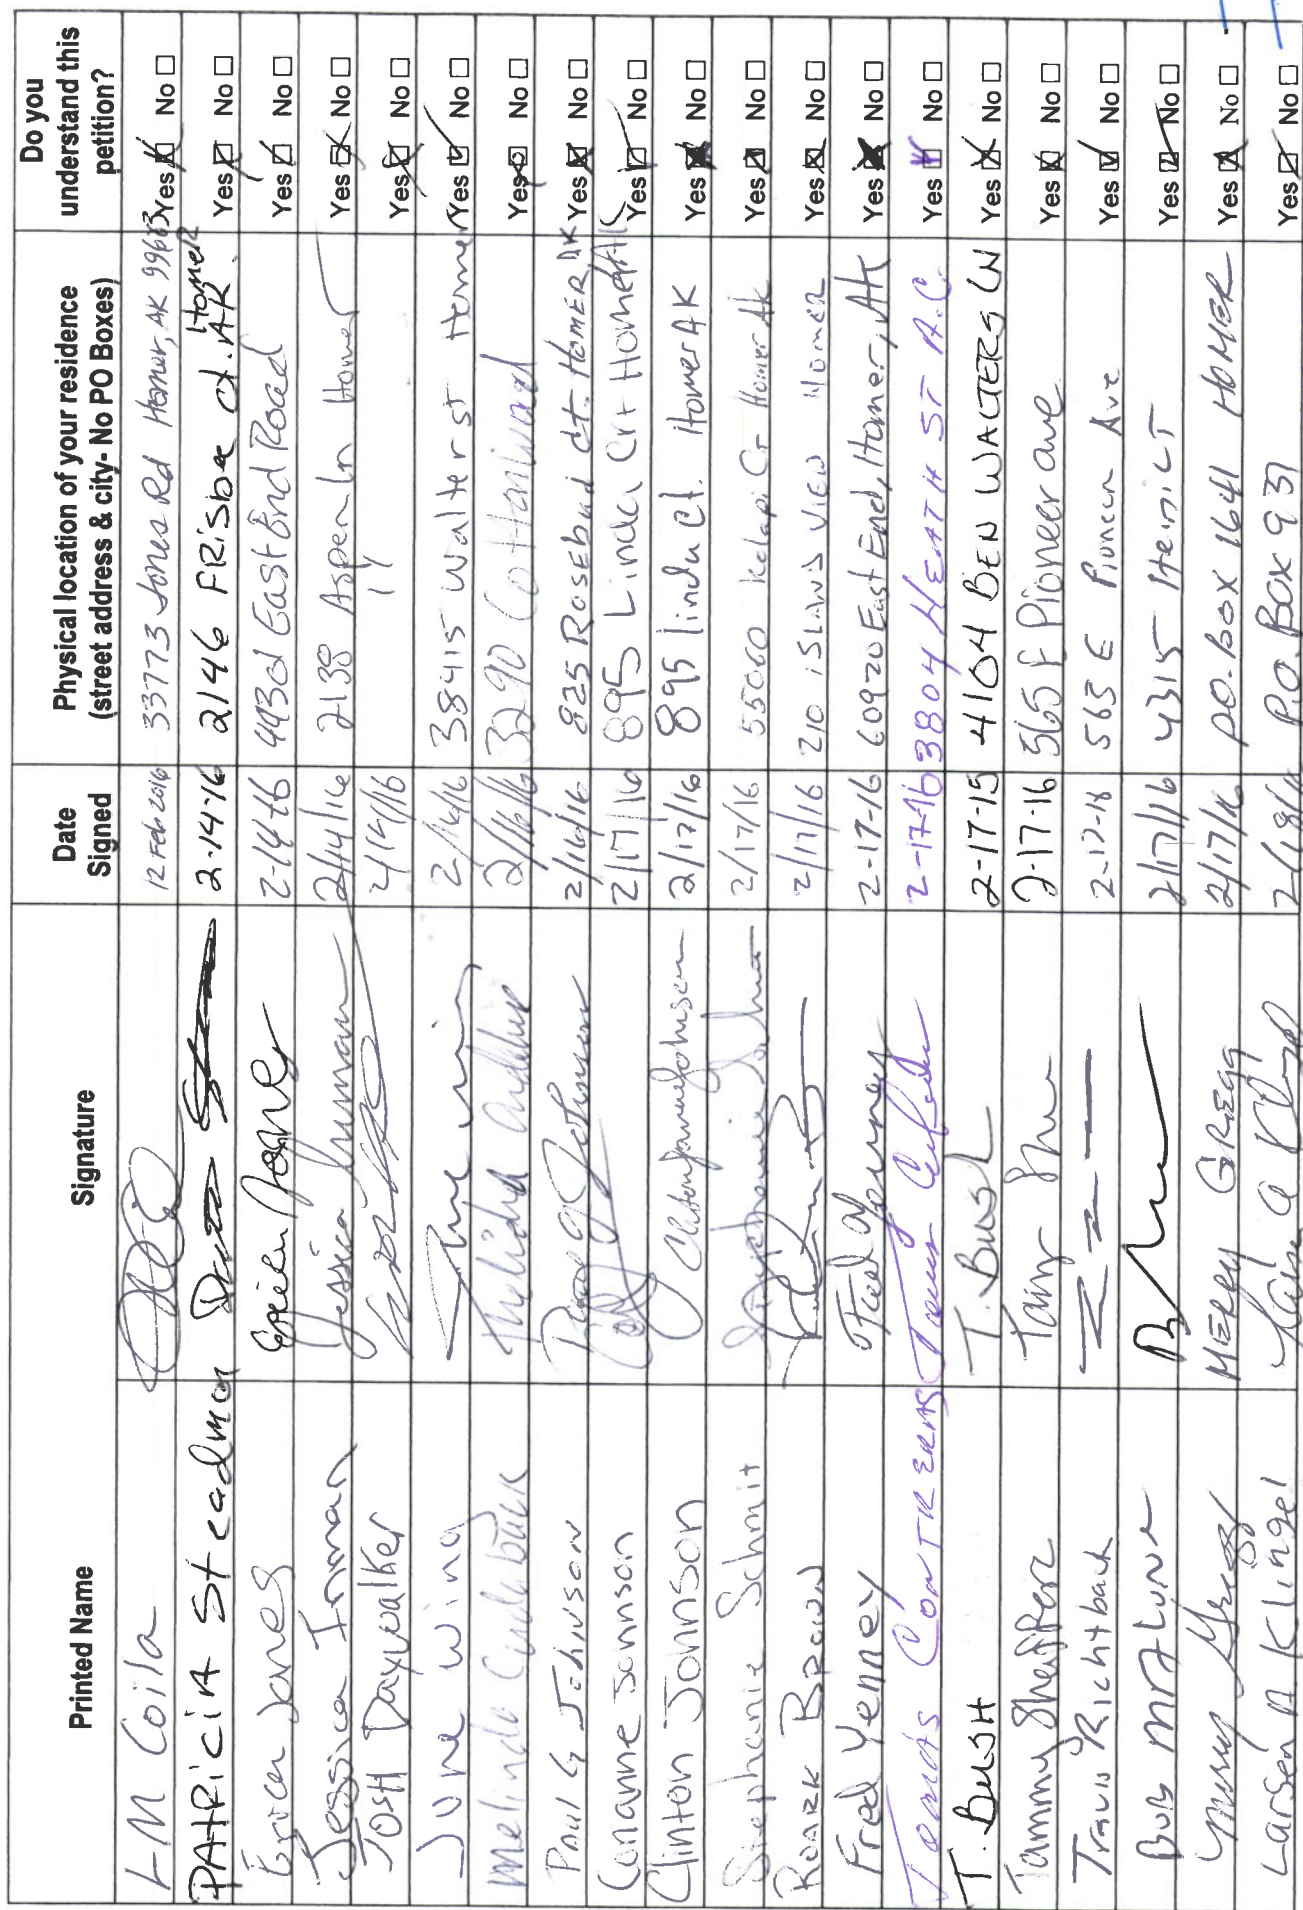 Printed Name Signature Date Signed Physical location of your residence (street address & city- No PO Boxes) Do you understand this petition?
LM Coila 12 Feb 2016 33773 Jones Rd Homer, AK 99603 Yes No
PATRiCiA Steadman 2-14-16 2146 FRisbee ct. Homer AK Yes No
Erica Jones 2-14-16 4932 East End Road Yes No
Jessica Inman Jessica Inman 2/14/16 2138 Aspen Ln Homer Yes No
JOSH Daywalker 2/14/16 " Yes No
June Wing 2/16/16 38415 Walter st Homer Yes No
Melinda 2/16/16 3290 Yes No
Paul G Johnson Paul G Johnson 2/16/16 825 Rosebud ct. HOMER AK Yes No
Conanne Johnson 2/17/16 895 Linda Crt Homer AK Yes No
Clinton Johnson 2/17/16 895 linda ct. Homer AK Yes No
Stephanie Schmit 2/17/16 55060 Ct Homer Ak Yes No
Roark Brown 2/17/16 210 iSLAND VIEW Homer Yes No
Fred Yenney Fred Yenney 2-17-16 60920 East End, Homer, AK Yes No
Tomas CONTRERAS 2-17-16 3804 HEATH ST Yes No
T. BUSH T. Bush 2-17-15 4104 BEN WALTERS LN Yes No
Tammy Sheffer 2-17-16 565 E Pioneer ave Yes No
Travis Richtback 2-17-16 565 E Pioneer Ave Yes No
Bob 2/17/16 4315 Yes No
Merry Gregg MERRY GREGG 2/17/16 po.box 1641 HOMER Yes No
Larsen A Klingel 2/18/16 P.O. Box 937 Yes No